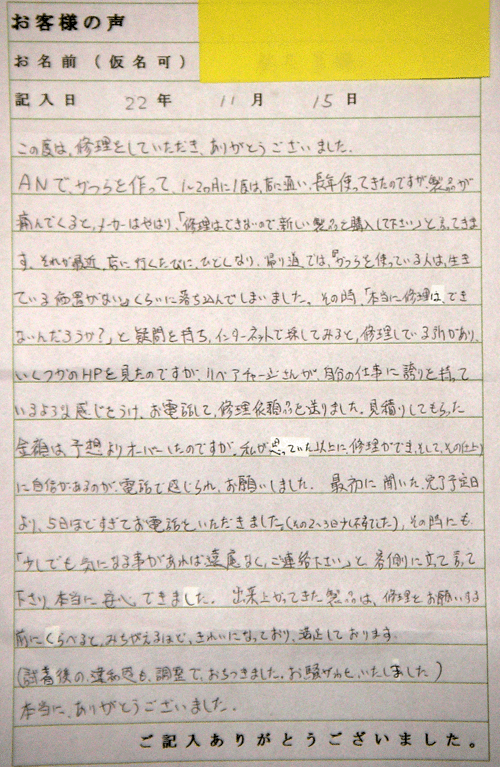 お客様の声
お名前(仮名可)
記入日 22年 11月 15日
この度は、修理をしていただき、ありがとうございました。
ANで、かつらを作って、1~2ヶ月に1度は、店に通い、長年使ってきたのですが、製品が
痛んでくると、メーカーはやはり、「修理はできないので、新しい製品を購入して下さい」と言ってきま
す。それが最近、店に行くたびに、ひどくなり、帰り道では、「かつらを使っている人は、生き
ている価値がない」くらいに落ち込んでしまいました。その時、「本当に修理は、でき
ないんだろうか?」と疑問を持ち、インターネットで探してみると、修理している所があり、
いくつかのHPを見たのですが、リペアチャージさんが、自分の仕事に誇りを持って
いるような感じをうけ、お電話して、修理依頼品を送りました。見積りしてもらった
金額は、予想よりオーバーしたのですが、私が思っていた以上に、修理ができ、そして、その仕上り
に自信があるのが、電話で感じられ、お願いしました。 最初に聞いた、完了予定日
より、5日ほどすぎてお電話をいただきました。(その2~3日少し不安でした)、その時にも
「少しでも気になる事があれば遠慮なく、ご連絡下さい」と、客側に立って言って
下さり、本当に安心できました。 出来上がってきた製品は、修理をお願いする
前にくらべると、みちがえるほど、きれいになっており、満足しております。
(試着後の、違和感も、調整で、おちつきました。お騒がわせいたしました)
本当に、ありがとうございました。
ご記入ありがとうございました。